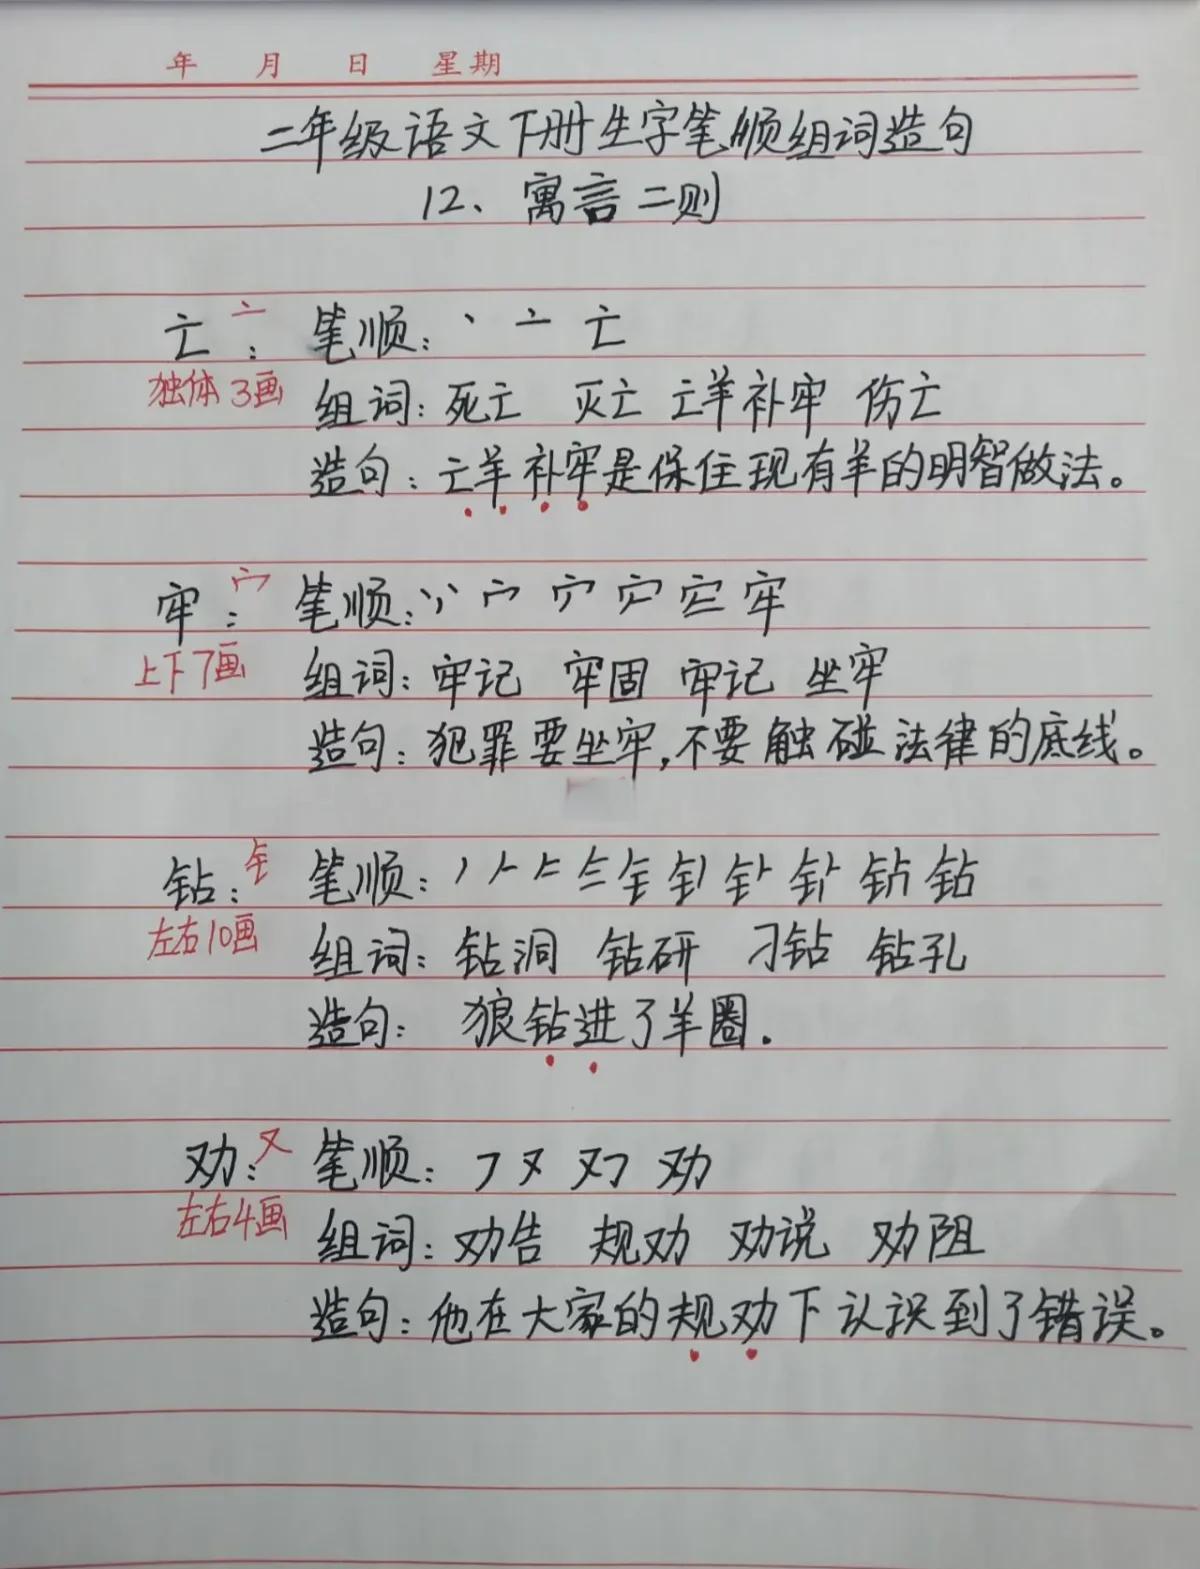 年 月 日 星期
二年级语文下册生字笔顺组词造句
12、寓言二则
亡：亠 笔顺：丶 亠 亡
独体 3画 组词：死亡 灭亡 亡羊补牢 伤亡
造句：亡羊补牢是保住现有羊的明智做法。
牢：宀 笔顺：丶 丷 宀 牢
上下7画 组词：牢记 牢固 牢记 坐牢
造句：犯罪要坐牢，不要触碰法律的底线。
钻：钅 笔顺：丿 𠂉 钅 钻
左右10画 组词：钻洞 钻研 刁钻 钻孔
造句： 狼钻进了羊圈.
劝：又 笔顺：㇇ 又 劝
左右4画 组词：劝告 规劝 劝说 劝阻
造句：他在大家的规劝下认识到了错误。